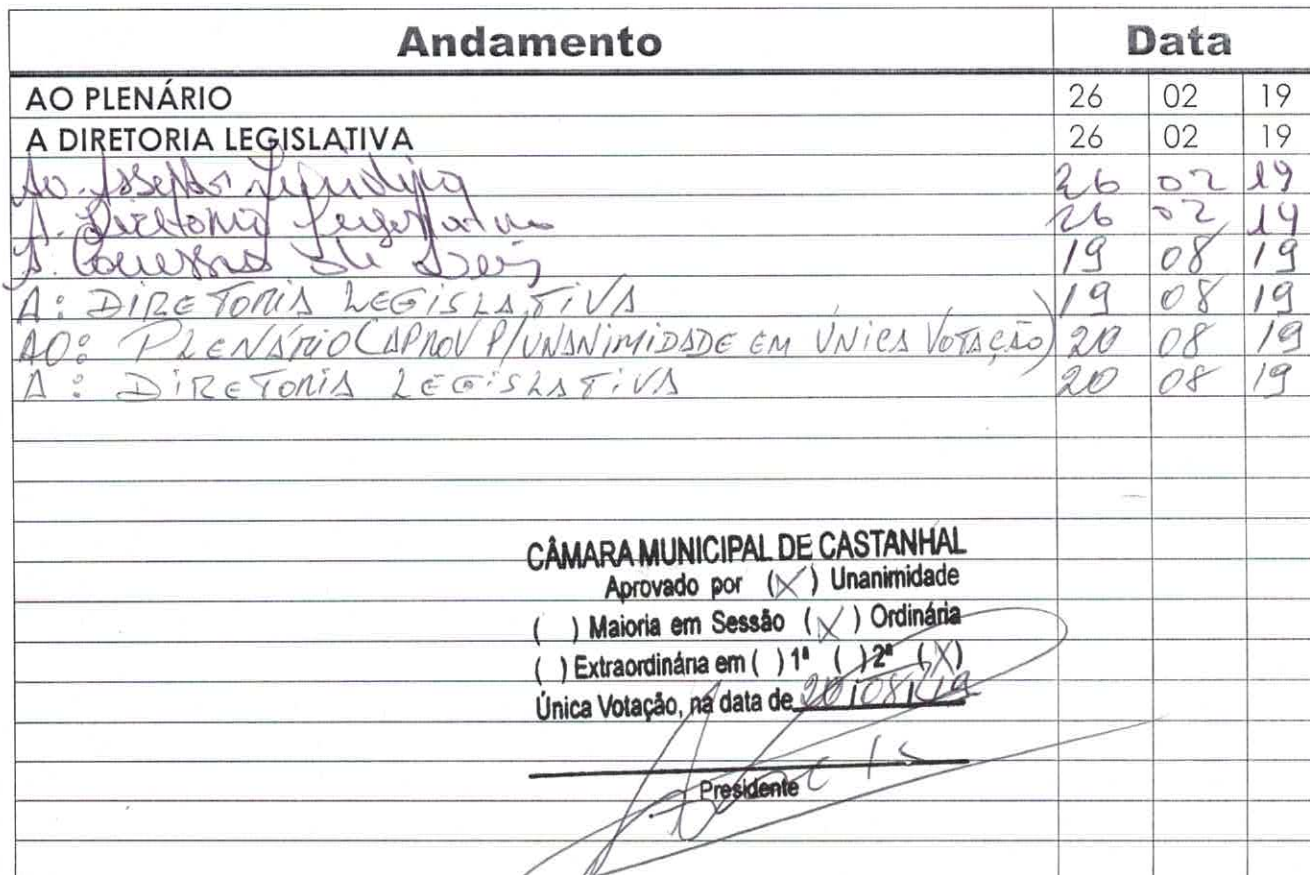 Andamento Data
AO PLENÁRIO 26 02 19
A DIRETORIA LEGISLATIVA 26 02 19
Ao. 26 02 19
A. Diretoria Legislativa 26 02 19
19 08 19
A: DIRETORIA LEGISLATIVA 19 08 19
AO: PLENÁRIO (APROV P/UNANIMIDADE EM ÚNICA VOTAÇÃO) 20 08 19
A: DIRETORIA LEGISLATIVA 20 08 19
CÂMARA MUNICIPAL DE CASTANHAL
Aprovado por (X) Unanimidade
( ) Maioria em Sessão (X) Ordinária
( ) Extraordinária em ( ) 1ª ( ) 2ª (X)
Única Votação, na data de 20/08/19
Presidente